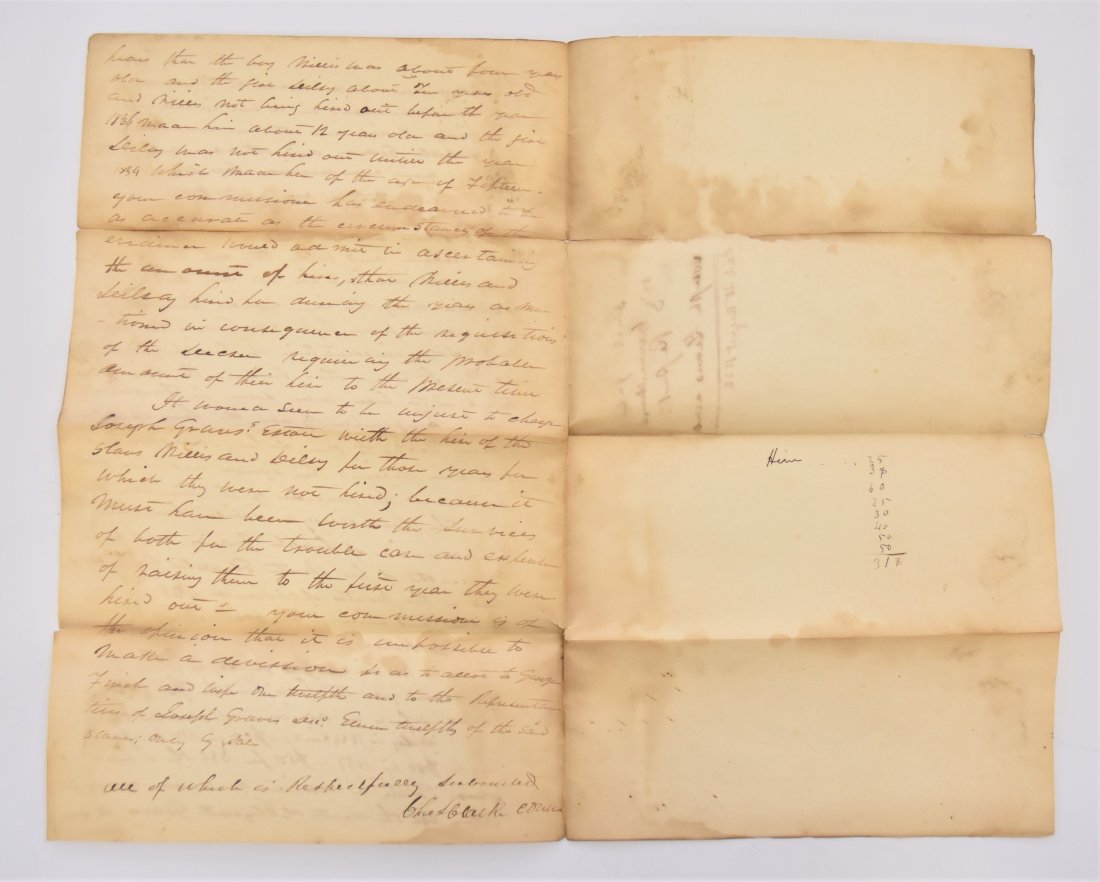 pears that the boy Willis was about four years
old and the girl Dilsy about Ten years old
and Willis not being hired out before the year
1836 made him about 12 years old and the girl
Dilsy was not hired out untill the year
1834 which made her of the age of Fifteen.
your commissioner has endeavored to be
as accurate as the circumstances of the
evidence would admit in ascertaining
the amount of hire, that Willis and
Dilsy hired for during the years as men
-tioned in consequence of the requisitions
of the decree requiring the probable
amount of their hire to the present time
It would seem to be unjust to charge
Joseph Graves Estate with the hire of the
slaves Willis and Dilsy for those years for
which they were not hired; because it
must have been worth the services
of both for the trouble care and expense
of raising them to the first year they were
hired out = your commissioner is of
the opinion that it is impossible to
make a division so as to allot to George
Finch and wife one twelfth and to the Representa
tives of Joseph Graves decd. Eleven twelfths of the said
slaves; only by sale
all of which is Respectfully submitted
Clarke
Hire
25
60
25
30
40
50
50